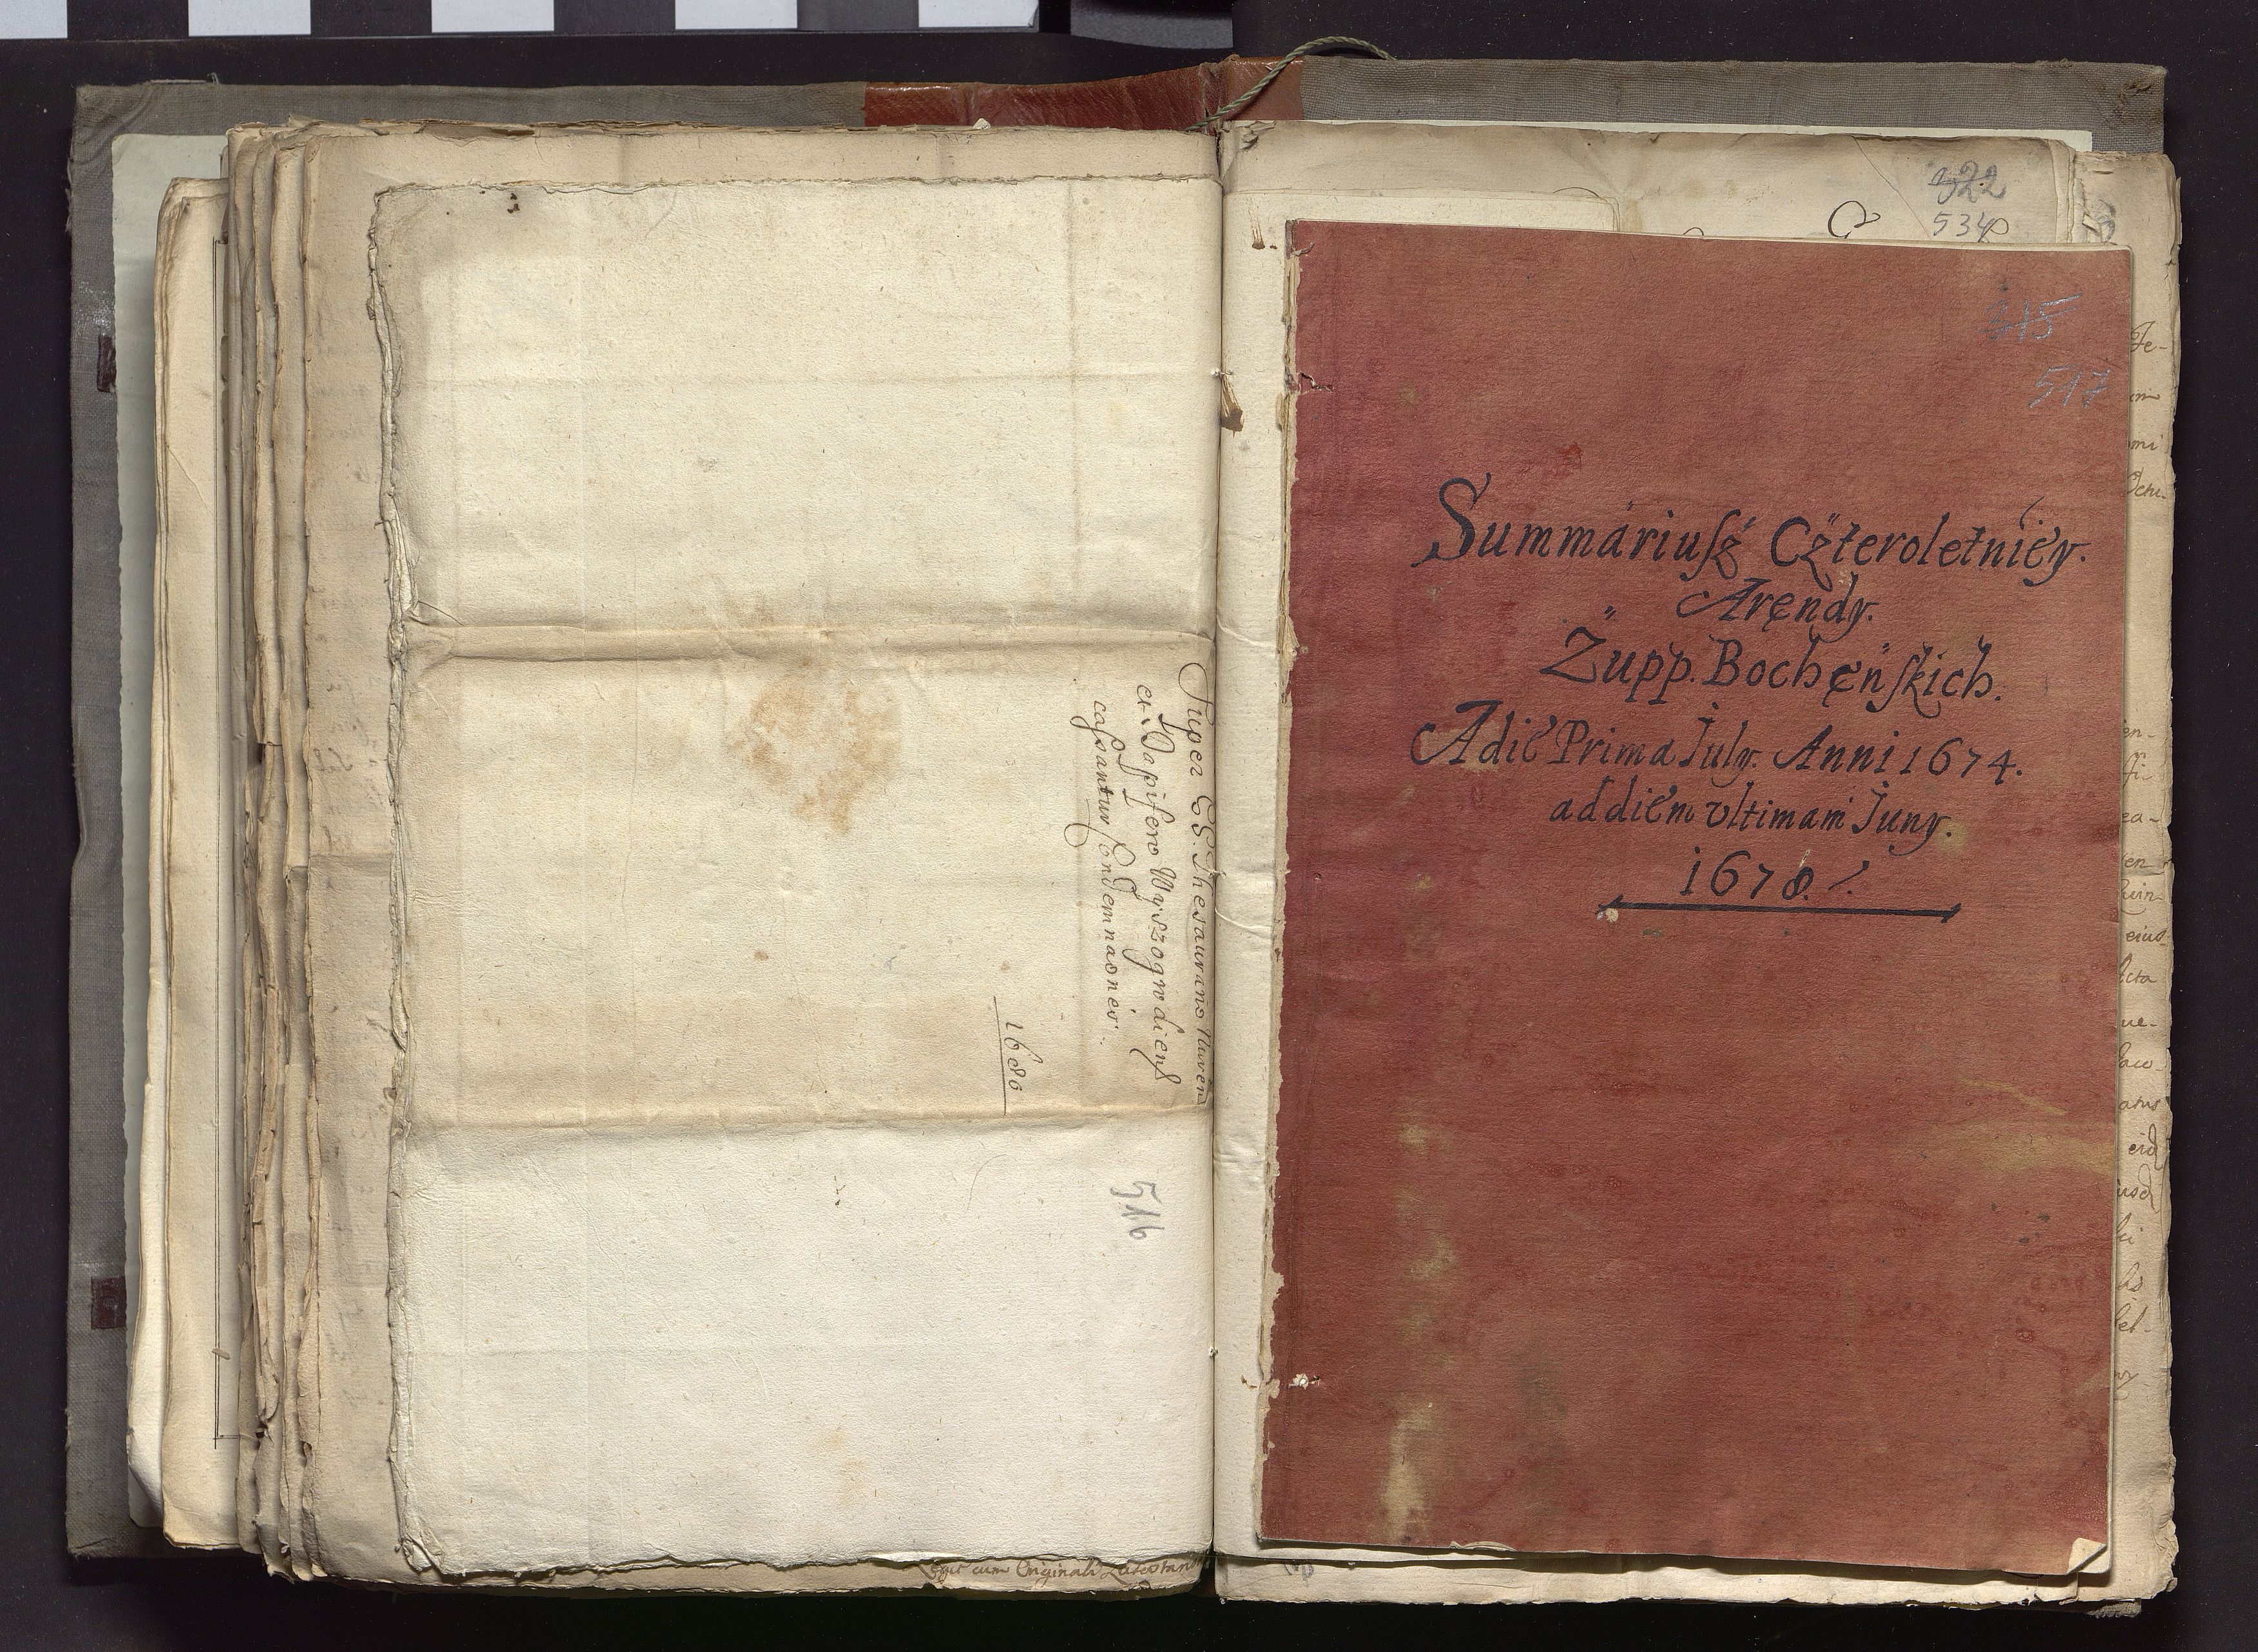 Super GG. Thesaurario Nuren
et Dapifero Wyszogrodiens
cassantur Condemnaones.
1680
516
Legit cum Originali
322
534
315
517
Summáriusż Cżteroletniéy.
Aręndy.
Żupp. Bochęńskich.
Adié Prima July. Anni 1674.
addiém vltimam Juny.
1678.